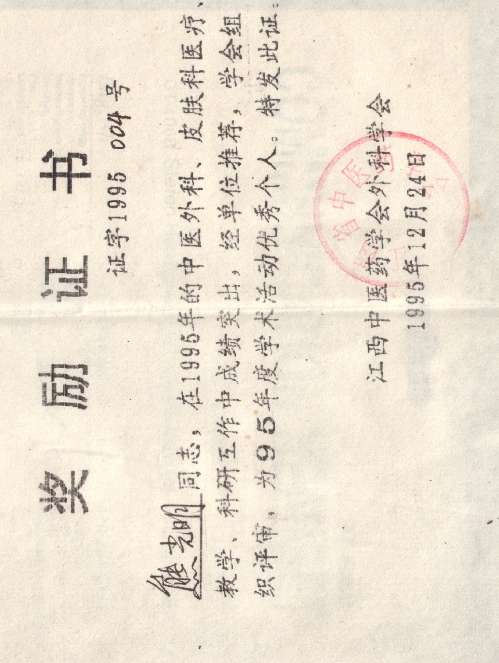 奖励证书
证字1995 004 号
熊光明同志，在1995年的中医外科、皮肤科医疗、
教学、科研工作中成绩突出，经单位推荐，学会组
织评审，为95年度学术活动优秀个人。特发此证。
江西中医药学会外科学会
1995年12月24日
省中医